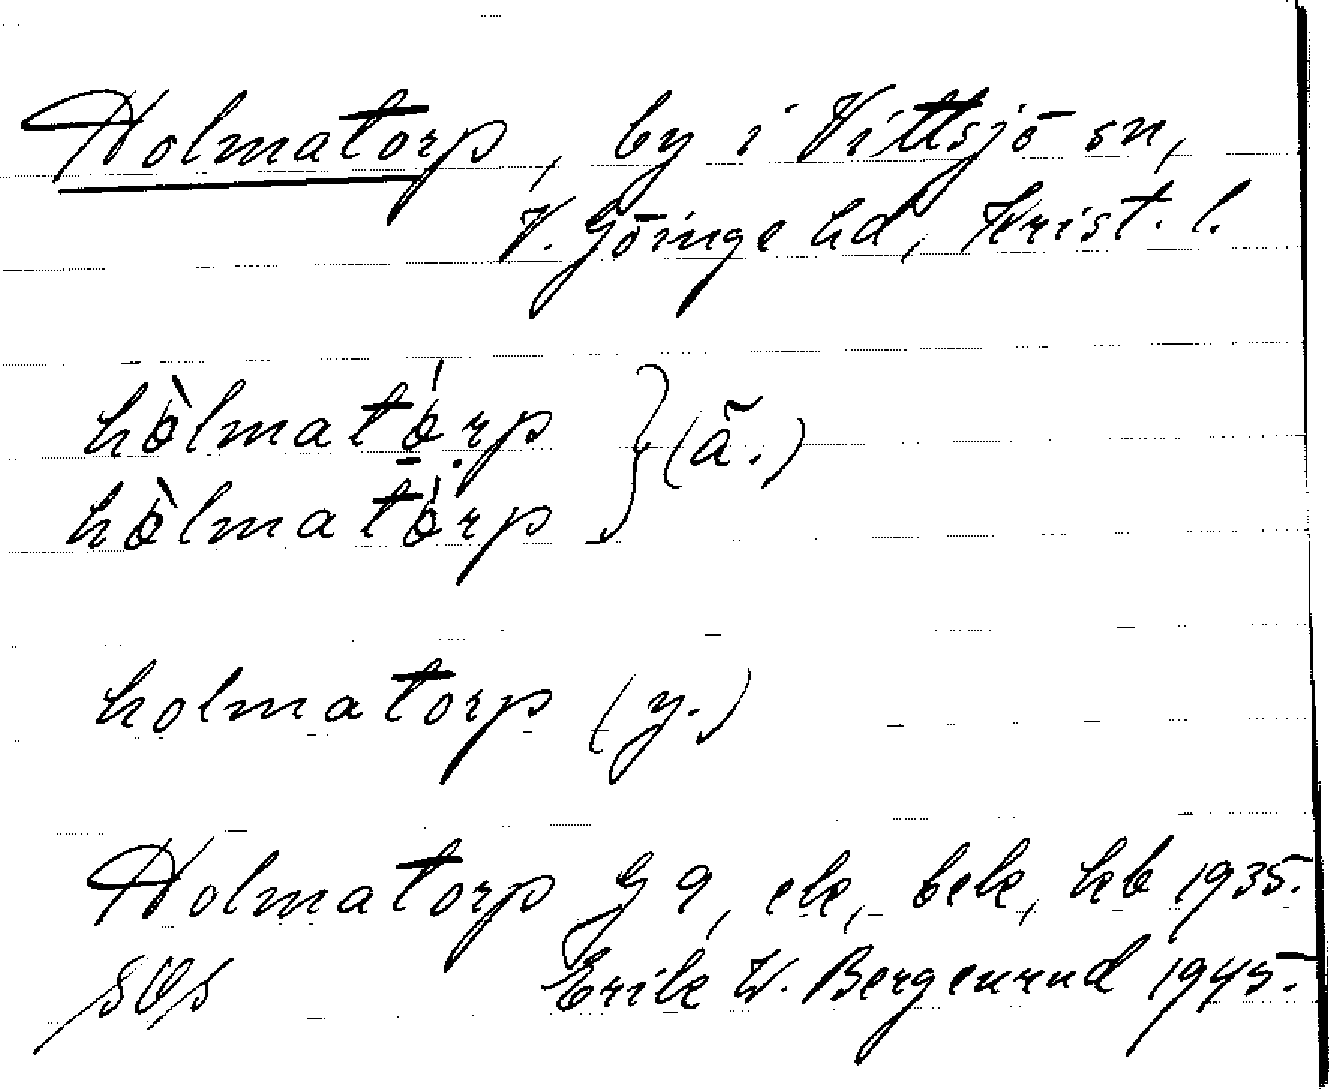 Holmatorp, by i Vittsjö sn,
V. Göinge hd, Krist. l.
hòlmatórp
hòlmatórp } (ä.)
holmatorp (y.)
Holmatorp G 9, ek, bek, kb 1935.
Erik W. Bergenrud 1945.